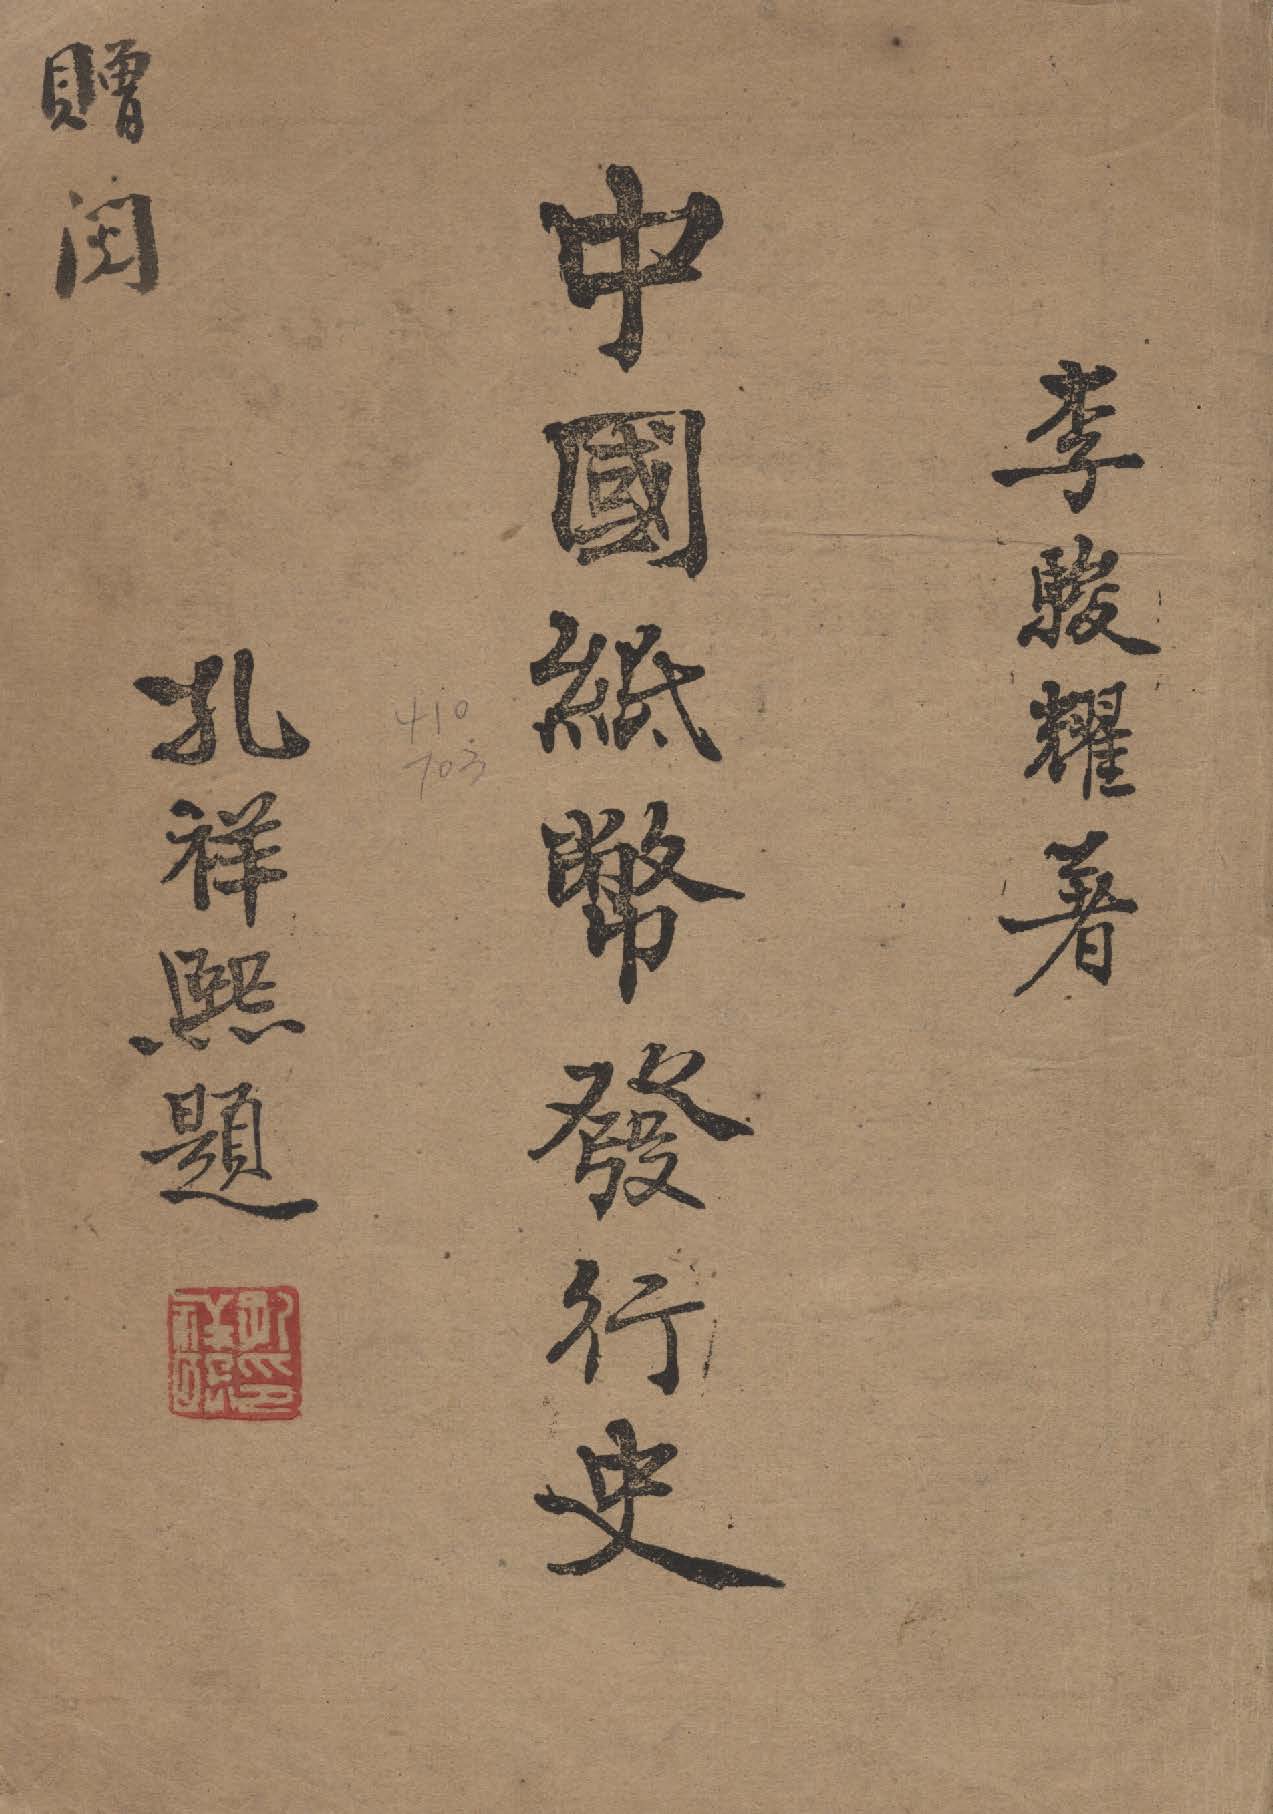 李駿耀著
中國紙幣發行史
410
703
孔祥熙題
孔印
祥熙
贈閱